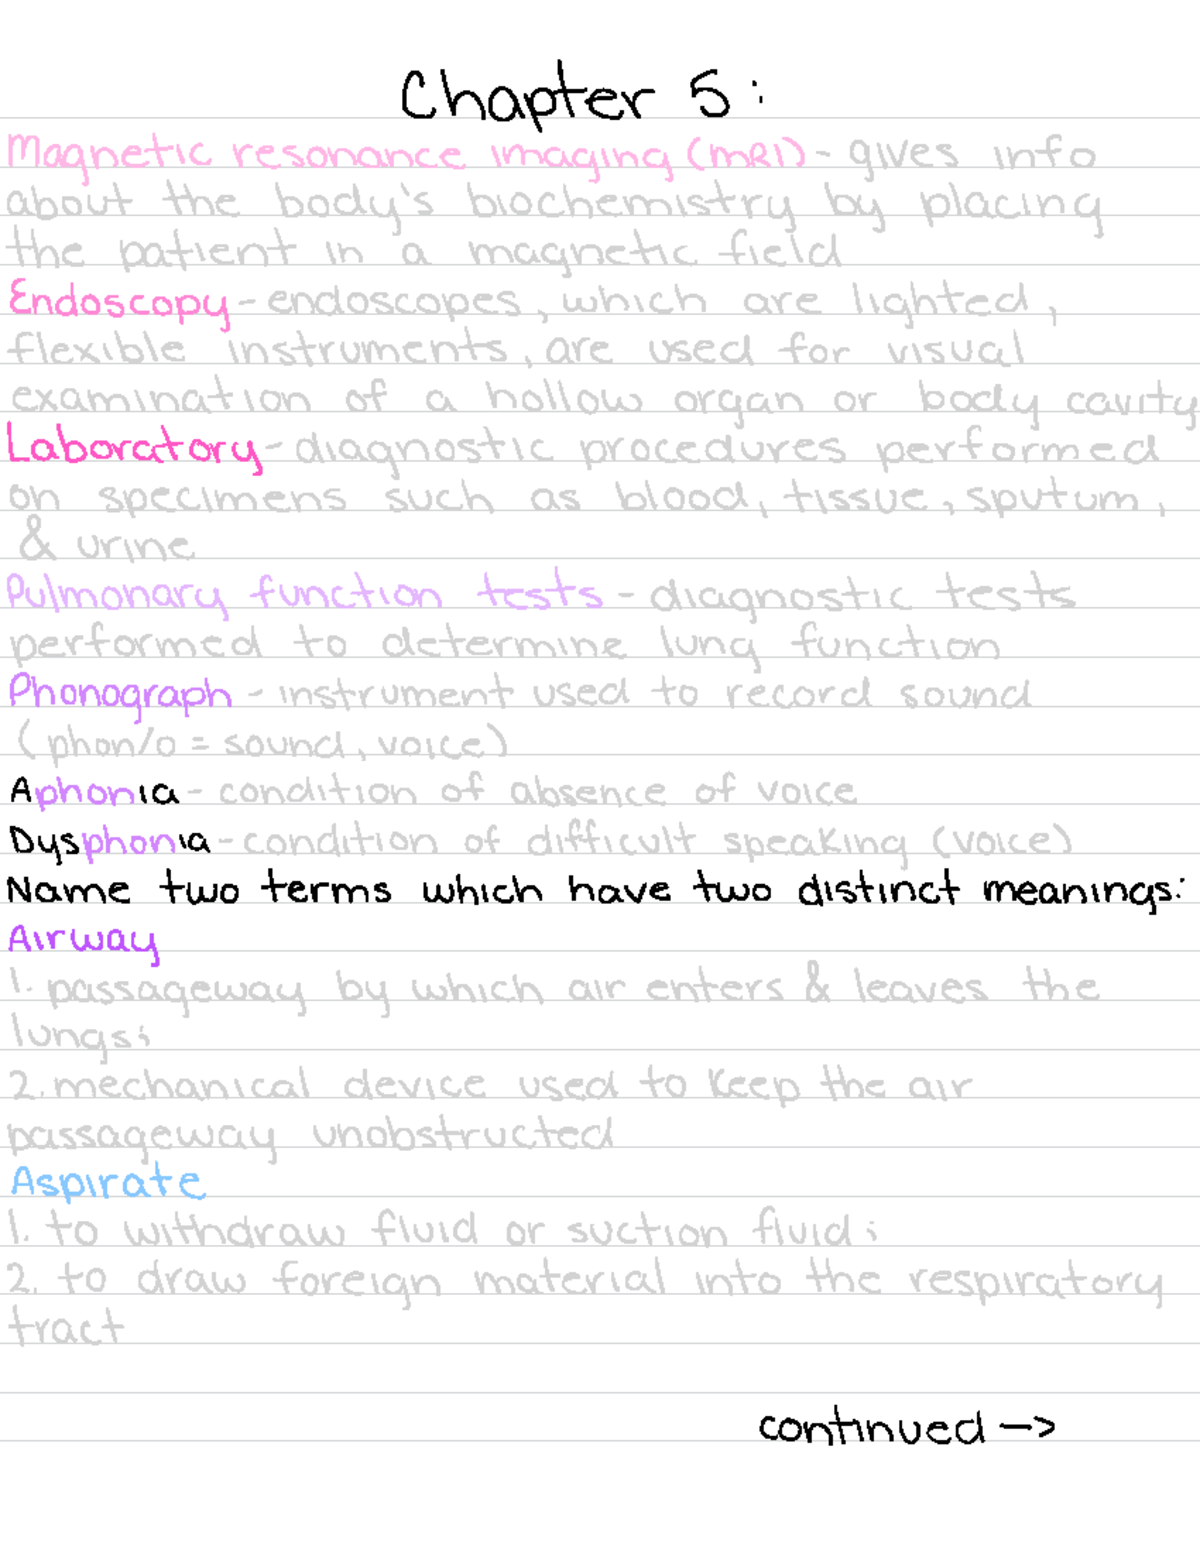 Chapter 5:
Magnetic resonance imaging (MRI) - gives info
about the body's biochemistry by placing
the patient in a magnetic field
Endoscopy - endoscopes, which are lighted,
flexible instruments, are used for visual
examination of a hollow organ or body cavity
Laboratory - diagnostic procedures performed
on specimens such as blood, tissue, sputum,
& urine
Pulmonary function tests - diagnostic tests
performed to determine lung function
Phonograph - instrument used to record sound
(phon/o = sound, voice)
Aphonia - condition of absence of voice
Dysphonia - condition of difficult speaking (voice)
Name two terms which have two distinct meanings:
Airway
1. passageway by which air enters & leaves the
lungs;
2. mechanical device used to keep the air
passageway unobstructed
Aspirate
1. to withdraw fluid or suction fluid;
2. to draw foreign material into the respiratory
tract
continued ->